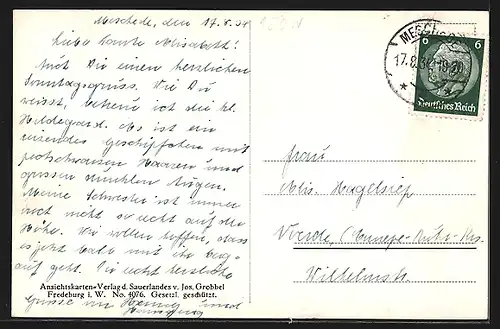 Meschede, den 17.8.34
Liebe Tante Elisabeth!
Dir einen herzlichen
Sonntagsgruss. Wie Du
weisst, betreue ich die kl.
Hildegard. Es ist ein
reizendes Geschöpfchen mit
pechschwarzen Haaren und
grossen dunklen Augen.
Meine Schwester ist immer
noch nicht so recht auf der
Höhe. Wir wollen hoffen, dass
es jetzt bald mit ihr berg-
auf geht. Dir recht herzliche
Ansichtskarten-Verlag d. Sauerlandes v. Jos. Grobbel
Fredeburg i. W. No. 4076. Gesetzl. geschützt.
Grüsse und
MESCHEDE
17.8.34
6 6
Deutsches Reich
Frau
Elis.
Voerde, (Ennepe-Ruhr-Krs.
Wilhelmstr.